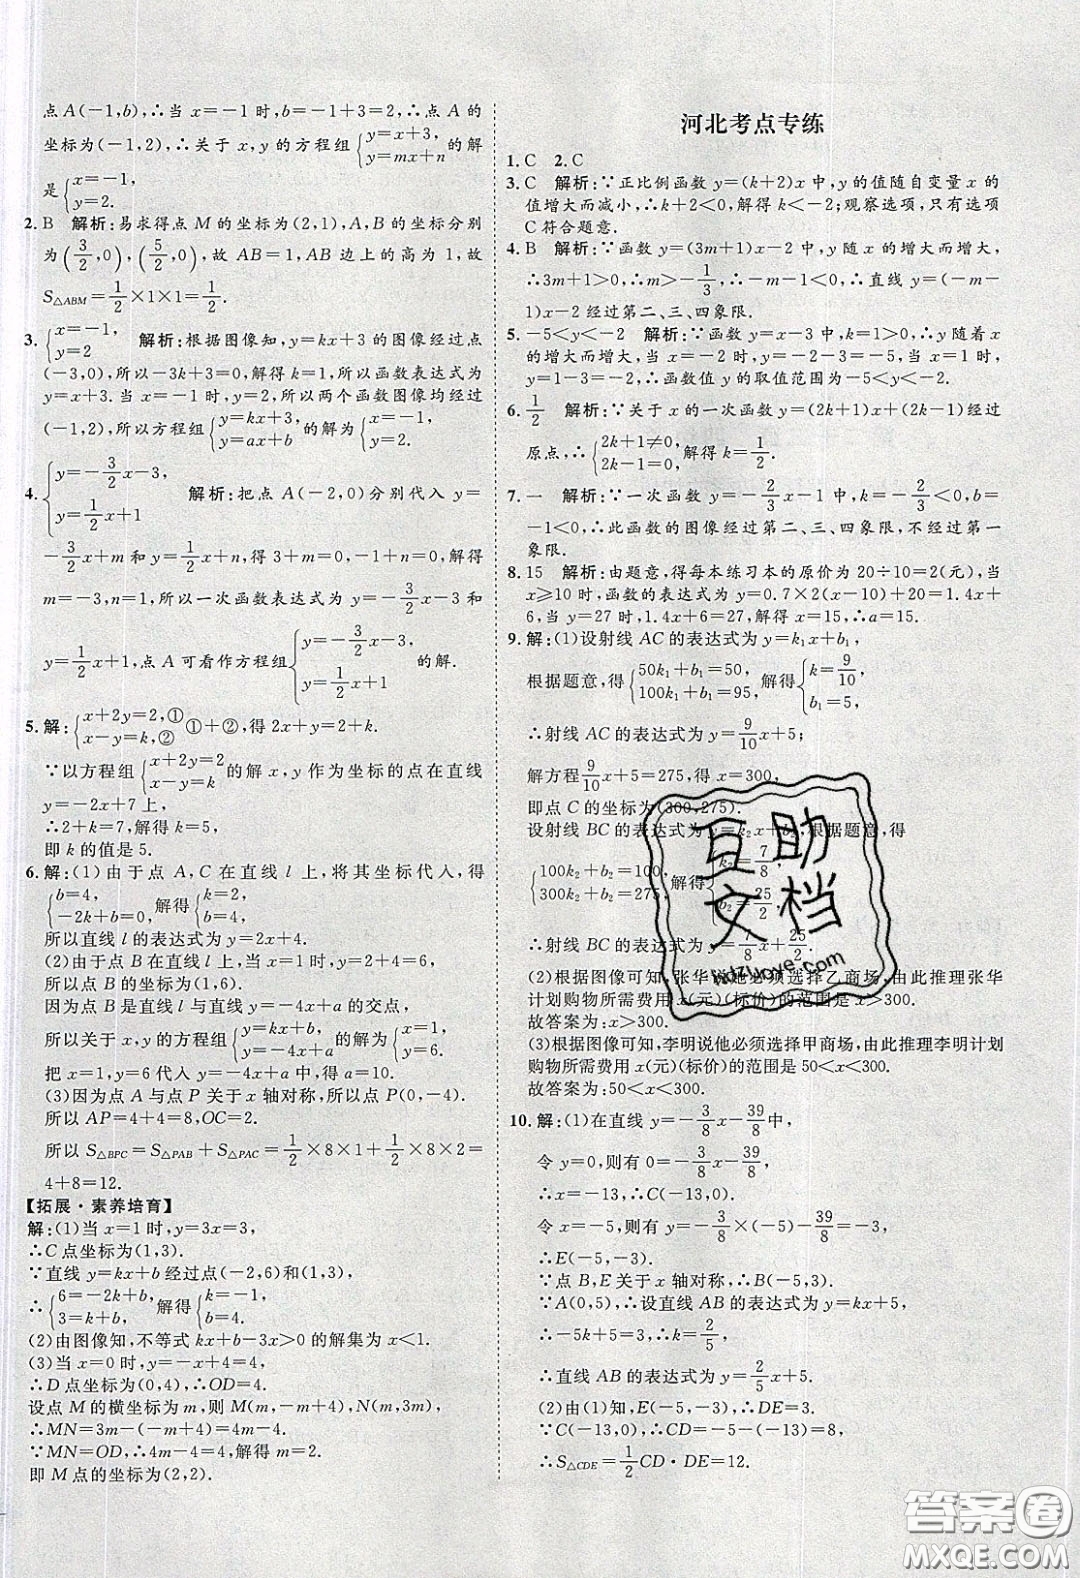 点A(-1,b),∴当x=-1时,b=-1+3=2,∴点A的
坐标为(-1,2),∴关于x,y的方程组{y=x+3, y=mx+n}的解
是{x=-1, y=2.
2. B 解析:易求得点M的坐标为(2,1),A,B的坐标分别
为(3/2,0),(5/2,0),故AB=1,AB边上的高为1,故
S△ABM=1/2×1×1=1/2.
3. {x=-1, y=2 解析:根据图像知,y=kx+3的图像经过点
(-3,0),所以-3k+3=0,解得k=1,所以函数表达式为
y=x+3.当x=-1时,y=2,所以两个函数图像均经过
(-1,2),所以方程组{y=kx+3, y=ax+b的解为{x=-1, y=2.
4. {y=-3/2x-3, y=1/2x+1 解析:把点A(-2,0)分别代入y=
-3/2x+m和y=1/2x+n,得3+m=0,-1+n=0,解得
m=-3,n=1,所以一次函数表达式为y=-3/2x-3和
y=1/2x+1,点A可看作方程组{y=-3/2x-3, y=1/2x+1的解.
5. 解:{x+2y=2,① x-y=k,② ①+②,得2x+y=2+k.
∵以方程组{x+2y=2 x-y=k的解x,y作为坐标的点在直线
y=-2x+7上,
∴2+k=7,解得k=5,
即k的值是5.
6. 解:(1)由于点A,C在直线l上,将其坐标代入,得
{b=4, -2k+b=0,解得{b=4, k=2.
所以直线l的表达式为y=2x+4.
(2)由于点B在直线l上,当x=1时,y=2+4=6.
所以点B的坐标为(1,6).
因为点B是直线l与直线y=-4x+a的交点,
所以关于x,y的方程组{y=kx+b, y=-4x+a的解为{x=1, y=6.
把x=1,y=6代入y=-4x+a,得a=10.
(3)因为点A与点P关于x轴对称,所以点P(0,-4),
所以AP=4+4=8,OC=2.
所以S△BPC=S△PAB+S△PAC=1/2×8×1+1/2×8×2=
4+8=12.
【拓展·素养培育】
解:(1)当x=1时,y=3x=3,
∴C点坐标为(1,3).
∵直线y=kx+b经过点(-2,6)和(1,3),
∴{6=-2k+b, 3=k+b,解得{k=-1, b=4.
(2)由图像知,不等式kx+b-3x>0的解集为x<1.
(3)当x=0时,y=-x+4=4,
∴D点坐标为(0,4),∴OD=4.
设点M的横坐标为m,则M(m,-m+4),N(m,3m),
∴MN=3m-(-m+4)=4m-4.
∵MN=OD,∴4m-4=4,解得m=2.
即M点的坐标为(2,2).
河北考点专练
1. C 2. C
3. C 解析:∵正比例函数y=(k+2)x中,y的值随自变量x的
值增大而减小,∴k+2<0,解得k<-2;观察选项,只有选项
C符合题意.
4. B 解析:∵函数y=(3m+1)x-2中,y随x的增大而增大,
∴3m+1>0,∴m>-1/3,∴-m-1<0,∴直线y=(-m-
1)x-2经过第二、三、四象限.
5. -5<y<-2 解析:∵函数y=x-3中,k=1>0,∴y随着x
的增大而增大,当x=-2时,y=-2-3=-5,当x=1时,
y=1-3=-2,∴函数值y的取值范围为-5<y<-2.
6. 1/2 解析:∵关于x的一次函数y=(2k+1)x+(2k-1)经过
原点,∴{2k+1≠0, 2k-1=0,解得k=1/2.
7. 一 解析:∵一次函数y=-2/3x-1中,k=-2/3<0,b=
-1<0,∴此函数的图像经过第二、三、四象限,不经过第一
象限.
8. 15 解析:由题意,得每本练习本的原价为20÷10=2(元),当
x≥10时,函数的表达式为y=0.7×2(x-10)+20=1.4x+
6,当y=27时,1.4x+6=27,解得x=15,∴a=15.
9. 解:(1)设射线AC的表达式为y=k₁x+b₁,
根据题意,得{50k₁+b₁=50, 100k₁+b₁=95,解得{k=9/10, b₁=5.
∴射线AC的表达式为y=9/10x+5;
解方程9/10x+5=275,得x=300,
即点C的坐标为(300,275).
设射线BC的表达式为y=k₂x+b₂,根据题意,得
{100k₂+b₂=100, 300k₂+b₂=275,解得{k₂=7/8, b₂=25/2,
∴射线BC的表达式为y=7/8x+25/2.
(2)根据图像可知,张华说他必须选择乙商场,由此推理张华
计划购物所需费用x(元)(标价)的范围是x>300.
故答案为:x>300.
(3)根据图像可知,李明说他必须选择甲商场,由此推理李明计划
购物所需费用x(元)(标价)的范围是50<x<300.
故答案为:50<x<300.
10. 解:(1)在直线y=-3/8x-39/8中,
令y=0,则有0=-3/8x-39/8,
∴x=-13,∴C(-13,0).
令x=-5,则有y=-3/8×(-5)-39/8=-3,
∴E(-5,-3).
∵点B,E关于x轴对称,∴B(-5,3).
∵A(0,5),∴设直线AB的表达式为y=kx+5,
∴-5k+5=3,∴k=2/5,
∴直线AB的表达式为y=2/5x+5.
(2)由(1)知,E(-5,-3),∴DE=3.
∵C(-13,0),∴CD=-5-(-13)=8,
∴S△CDE=1/2CD·DE=12.
互助
文档
hdzuoye.com
答案圈
MXQE.COM